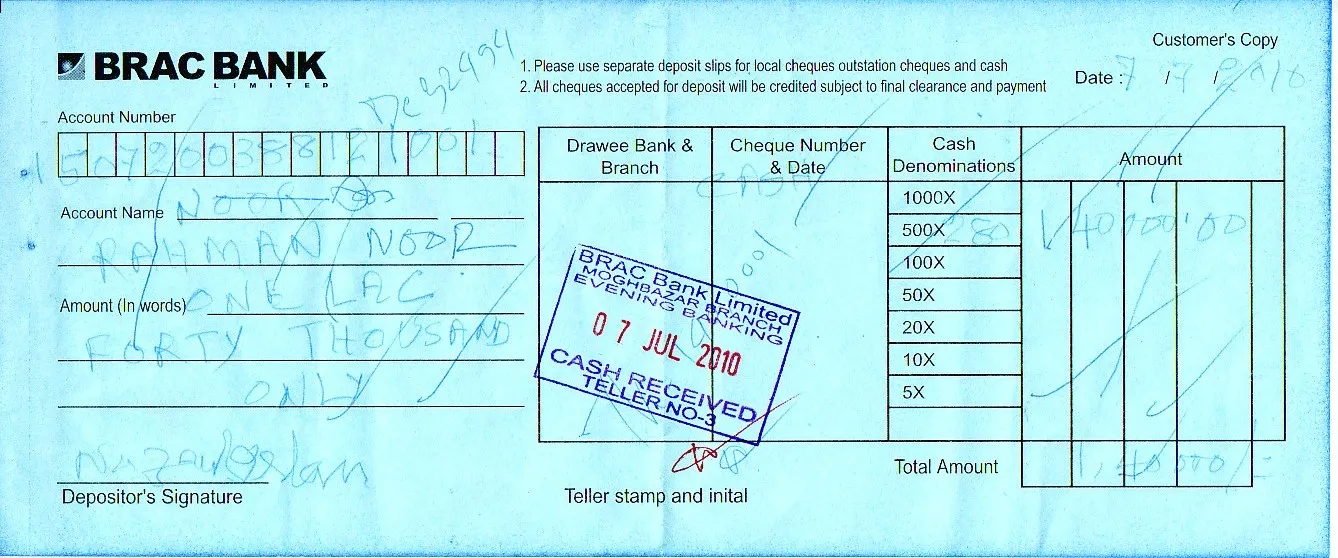 Customer's Copy
BRAC BANK
LIMITED
1. Please use separate deposit slips for local cheques outstation cheques and cash
2. All cheques accepted for deposit will be credited subject to final clearance and payment
Date : 7 / 7 / 2010
Account Number
Account Name NOOR
RAHMAN NOOR
Amount (In words) ONE LAC
FORTY THOUSAND
ONLY
Depositor's Signature
Drawee Bank & Branch
Cheque Number & Date
Cash Denominations
Amount
CASH
1000X
500X 280 140000.00
100X
50X
20X
10X
5X
Total Amount 1,40000/=
BRAC Bank Limited
MOGHBAZAR BRANCH
EVENING BANKING
07 JUL 2010
CASH RECEIVED
TELLER NO-3
Teller stamp and inital